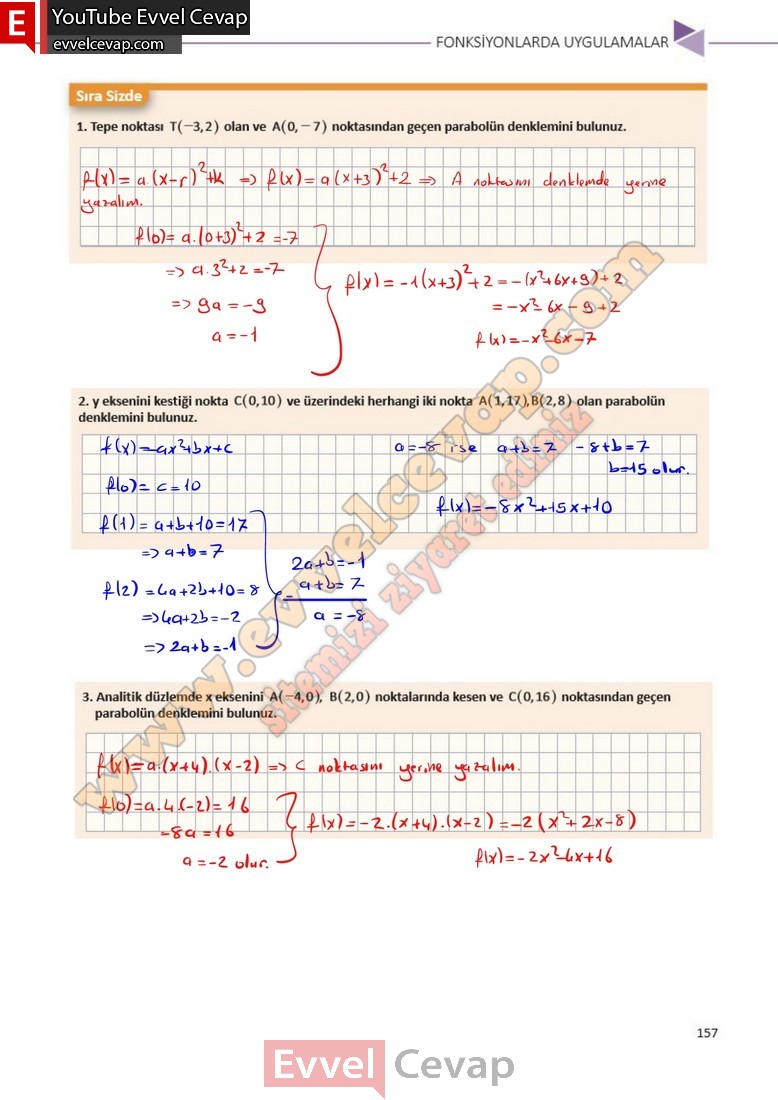 E YouTube Evvel Cevap
evvelcevap.com
FONKSİYONLARDA UYGULAMALAR
Sıra Sizde
1. Tepe noktası T(−3,2) olan ve A(0,−7) noktasından geçen parabolün denklemini bulunuz.
f(x) = a.(x-r)²+k => f(x) = a(x+3)²+2 => A noktasını denklemde yerine
yazalım.
f(0) = a.(0+3)²+2 = -7
=> a.3²+2 = -7
=> 9a = -9
a = -1
f(x) = -1(x+3)²+2 = -(x²+6x+9)+2
= -x²-6x-9+2
f(x) = -x²-6x-7
2. y eksenini kestiği nokta C(0,10) ve üzerindeki herhangi iki nokta A(1,17),B(2,8) olan parabolün
denklemini bulunuz.
f(x) = ax²+bx+c
f(0) = c = 10
f(1) = a+b+10 = 17
=> a+b = 7
f(2) = 4a+2b+10 = 8
=> 4a+2b = -2
=> 2a+b = -1
2a+b = -1
- a+b = 7
a = -8
a = -8 ise a+b = 7 -8+b = 7
b = 15 olur.
f(x) = -8x²+15x+10
3. Analitik düzlemde x eksenini A(−4,0), B(2,0) noktalarında kesen ve C(0,16) noktasından geçen
parabolün denklemini bulunuz.
f(x) = a.(x+4).(x-2) => C noktasını yerine yazalım.
f(0) = a.4.(-2) = 16
-8a = 16
a = -2 olur.
f(x) = -2.(x+4).(x-2) = -2(x²+2x-8)
f(x) = -2x²-4x+16
www.evvelcevap.com
sitemizi ziyaret ediniz
157
Evvel Cevap